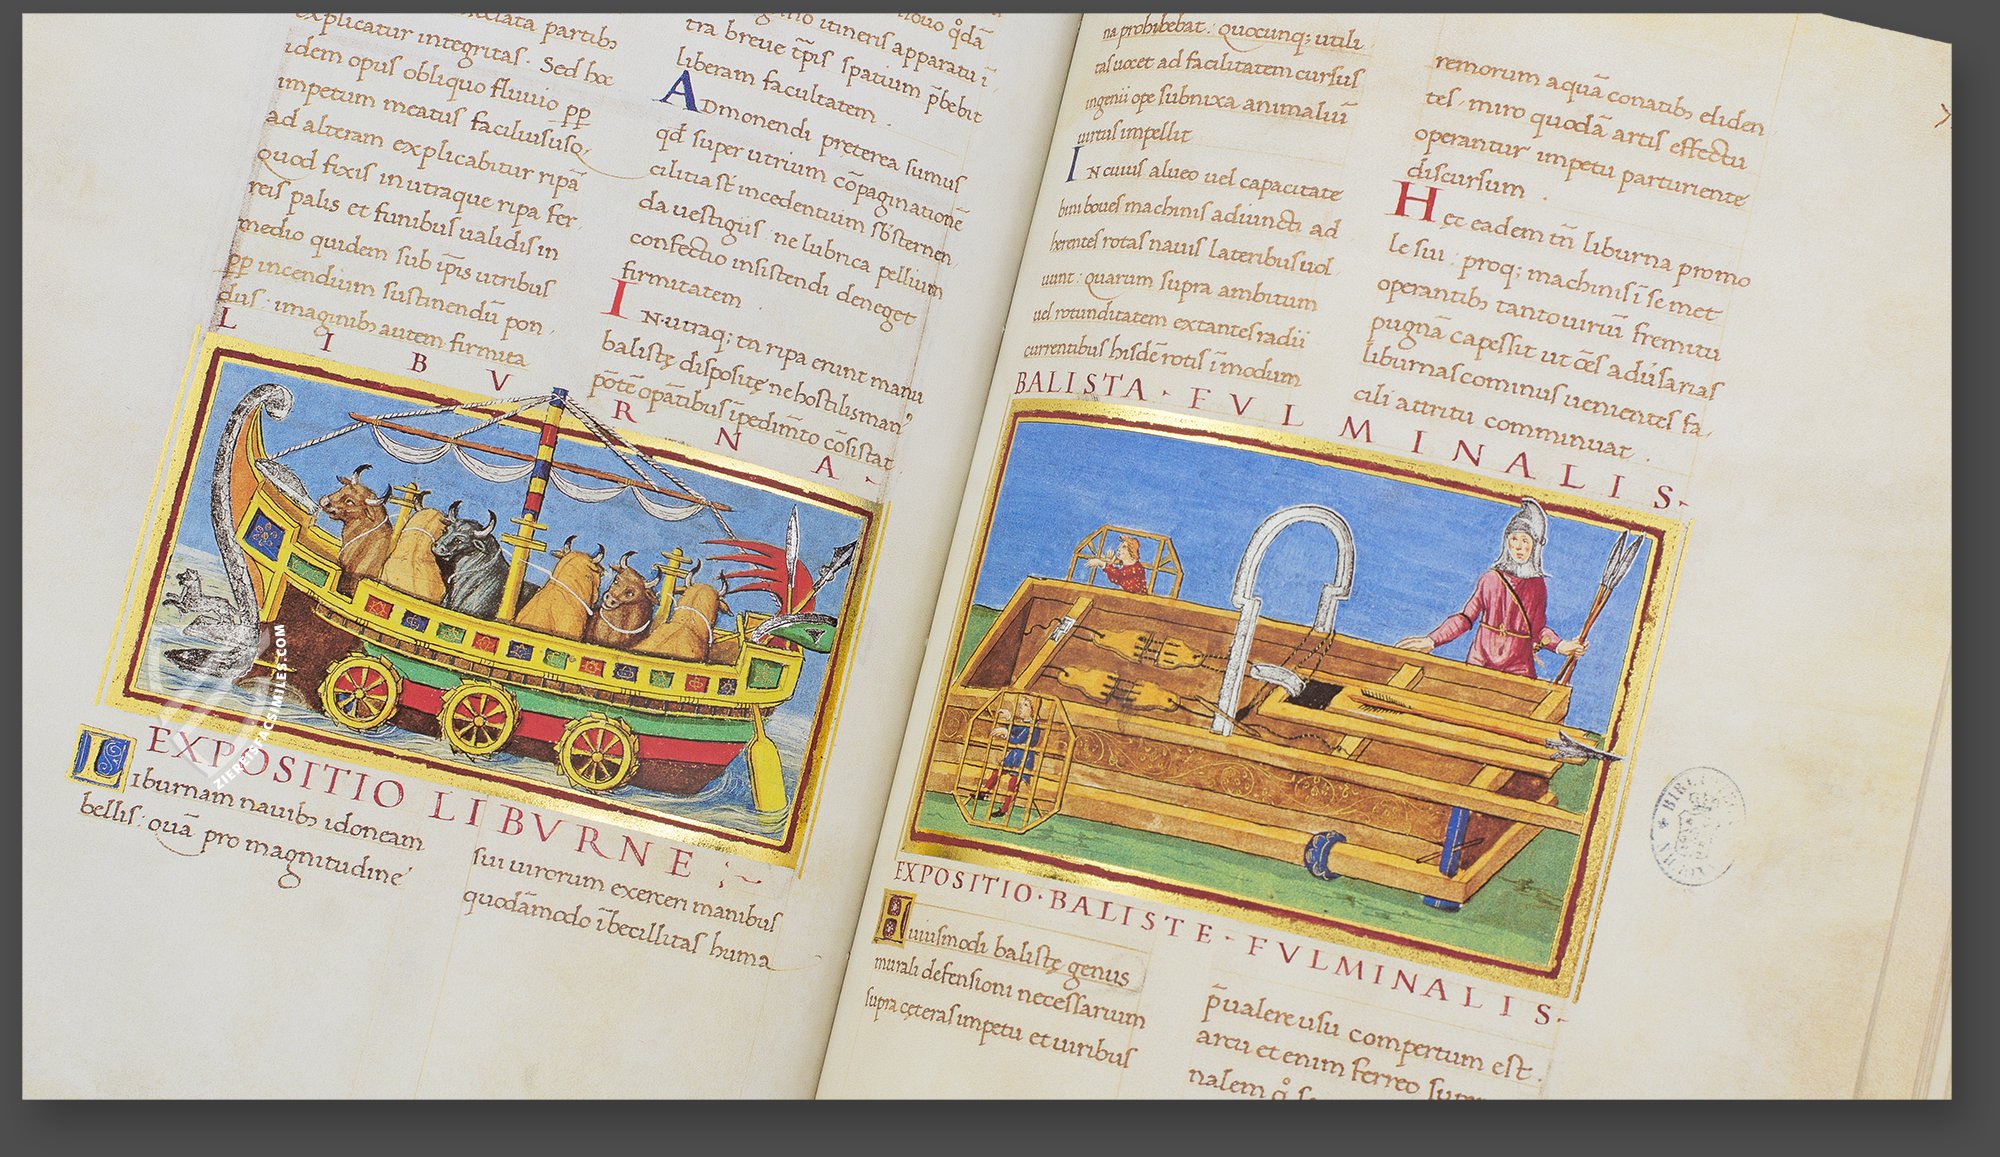 explicatur integritas. Sed hoc
idem opus obliquo fluuio pp̄
impetum meatus faciliusuſq;
ad alteram explicabitur ripā
quod fixis in utraque ripa fer
reis palis et funibus ualidis in
medio quidem sub ip̄is utribus
pp̄ incendium sustinendū pon
dus: imaginibꝫ autem firmita
tra breue tp̄is spatium p̄bebit
liberam facultatem.
ADmonendi preterea sumus
qd̄ super utrium cōpaginationē
cilitia st̄ incedentium sb̄sternen
da uestigiis: ne lubrica pellium
confectio insistendi deneget
firmitatem.
IN utraq; tn̄ ripa erunt manu
balistę dispositę ne hostilis man⁹
pōtē opātibus īpedimto cōsistat
LIBVRNA
EXPOSITIO LIBVRNE
Liburnam nauibꝫ idoneam
bellis: quā pro magnitudine
sui uirorum exerceri manibus
quodāmodo ībecillitas huma
na prohibebat: quocunq; utili
tas uocet ad facilitatem cursus
ingenii ope subnixa animaliū
uirtus impellit
IN cuius alueo uel capacitate
bini boues machinis adiuncti ad
herentes rotas nauis lateribus uol
uunt: quarum supra ambitum
uel rotunditatem extantes radii
currentibus hisdē rotis ī modum
remorum aquā conatibꝫ eliden
tes, miro quodā artis effectu
operantur impetu parturiente
discursum.
Hęc eadem tn̄ liburna promo
le sui: proq; machinis ī se met
operantibꝫ tanto uiriū fremitu
pugnā capessit ut oēs aduersarias
liburnas cominus uenientes fa
cili attritu comminuat.
BALISTA FVLMINALIS
EXPOSITIO BALISTE FVLMINALIS
Huiusmodi balistę genus
murali defensioni necessarium
supra ceteras impetu et uiribus
p̄ualere usu compertum est.
arcu et enim ferreo
ZIEREIS FACSIMILES.COM